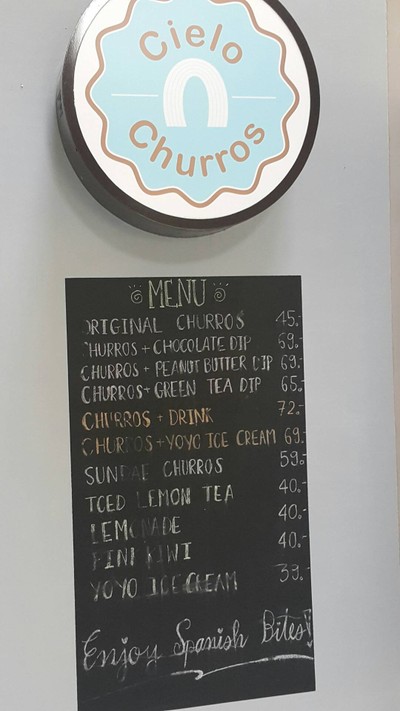 Cielo
Churros
MENU
ORIGINAL CHURROS 45.-
CHURROS + CHOCOLATE DIP 59.-
CHURROS + PEANUT BUTTER DIP 69.-
CHURROS + GREEN TEA DIP 65.-
CHURROS + DRINK 72.-
CHURROS + YOYO ICE CREAM 69.-
SUNDAE CHURROS 59.-
ICED LEMON TEA 40.-
LEMONADE 40.-
KIWI 40.-
YOYO ICE CREAM 39.-
Enjoy Spanish Bites!